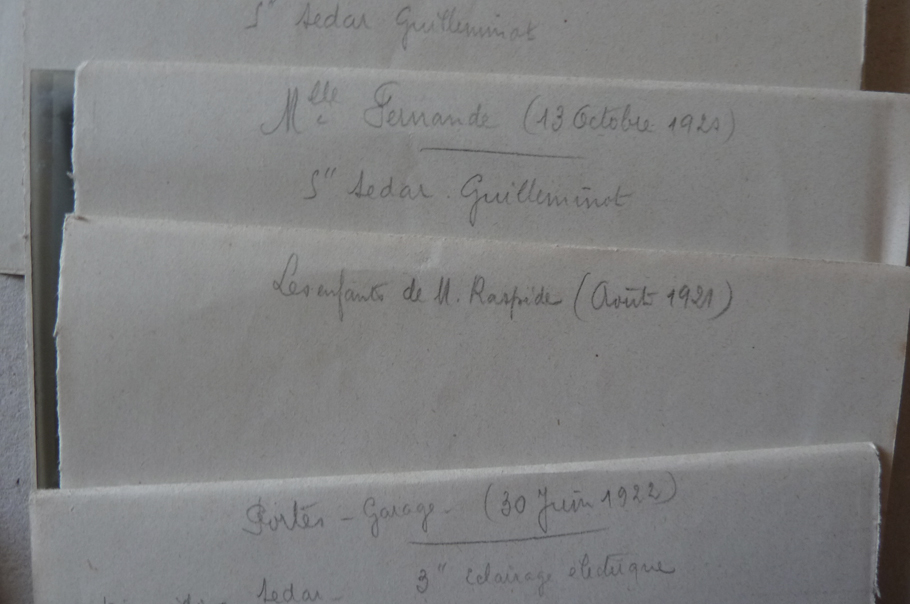 5" Sedar Guilleminot
Melle Fernande (13 Octobre 1921)
5" Sedar. Guilleminot
Les enfants de M. Raspide (Août 1921)
Portes - Garage - (30 Juin 1922)
Sedar - 3" éclairage électrique